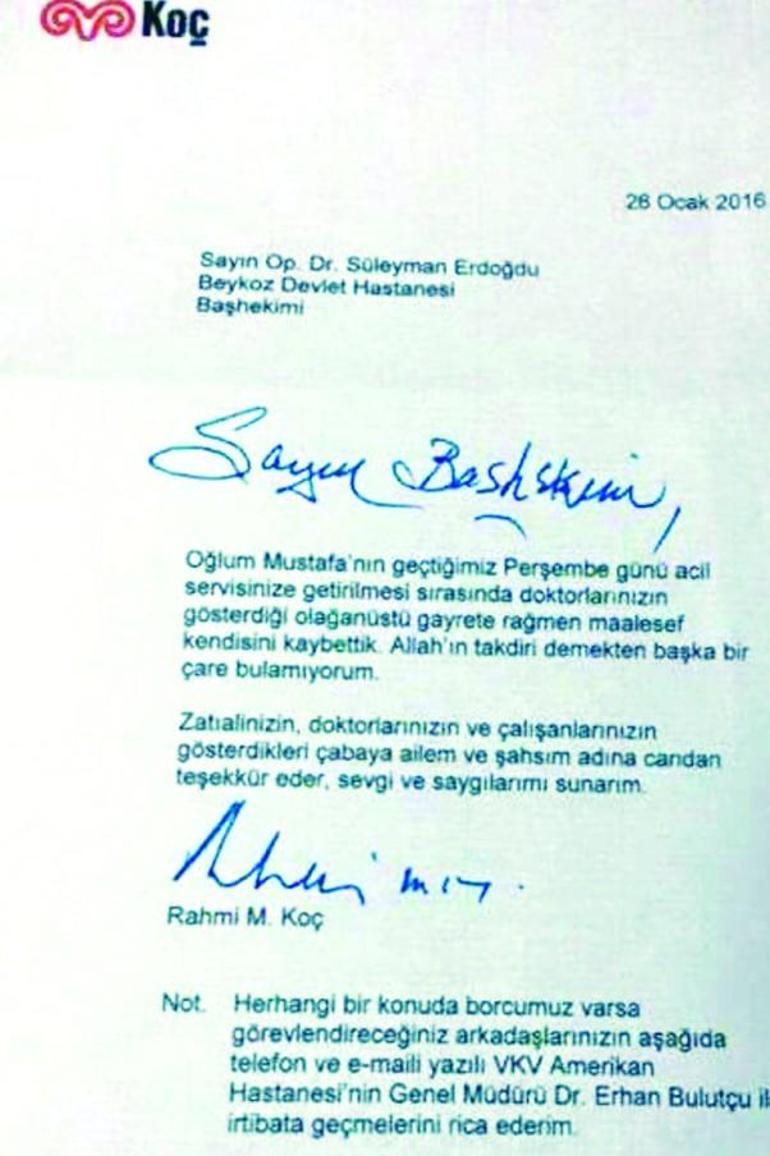 Koç
28 Ocak 2016
Sayın Op. Dr. Süleyman Erdoğdu
Beykoz Devlet Hastanesi
Başhekimi
Sayın Başhekim,
Oğlum Mustafa'nın geçtiğimiz Perşembe günü acil
servisinize getirilmesi sırasında doktorlarınızın
gösterdiği olağanüstü gayrete rağmen maalesef
kendisini kaybettik. Allah'ın takdiri demekten başka bir
çare bulamıyorum.
Zatıalinizin, doktorlarınızın ve çalışanlarınızın
gösterdikleri çabaya ailem ve şahsım adına candan
teşekkür eder, sevgi ve saygılarımı sunarım.
Rahmi M. Koç
Not. Herhangi bir konuda borcumuz varsa
görevlendireceğiniz arkadaşlarınızın aşağıda
telefon ve e-maili yazılı VKV Amerikan
Hastanesi'nin Genel Müdürü Dr. Erhan Bulutçu il
irtibata geçmelerini rica ederim.